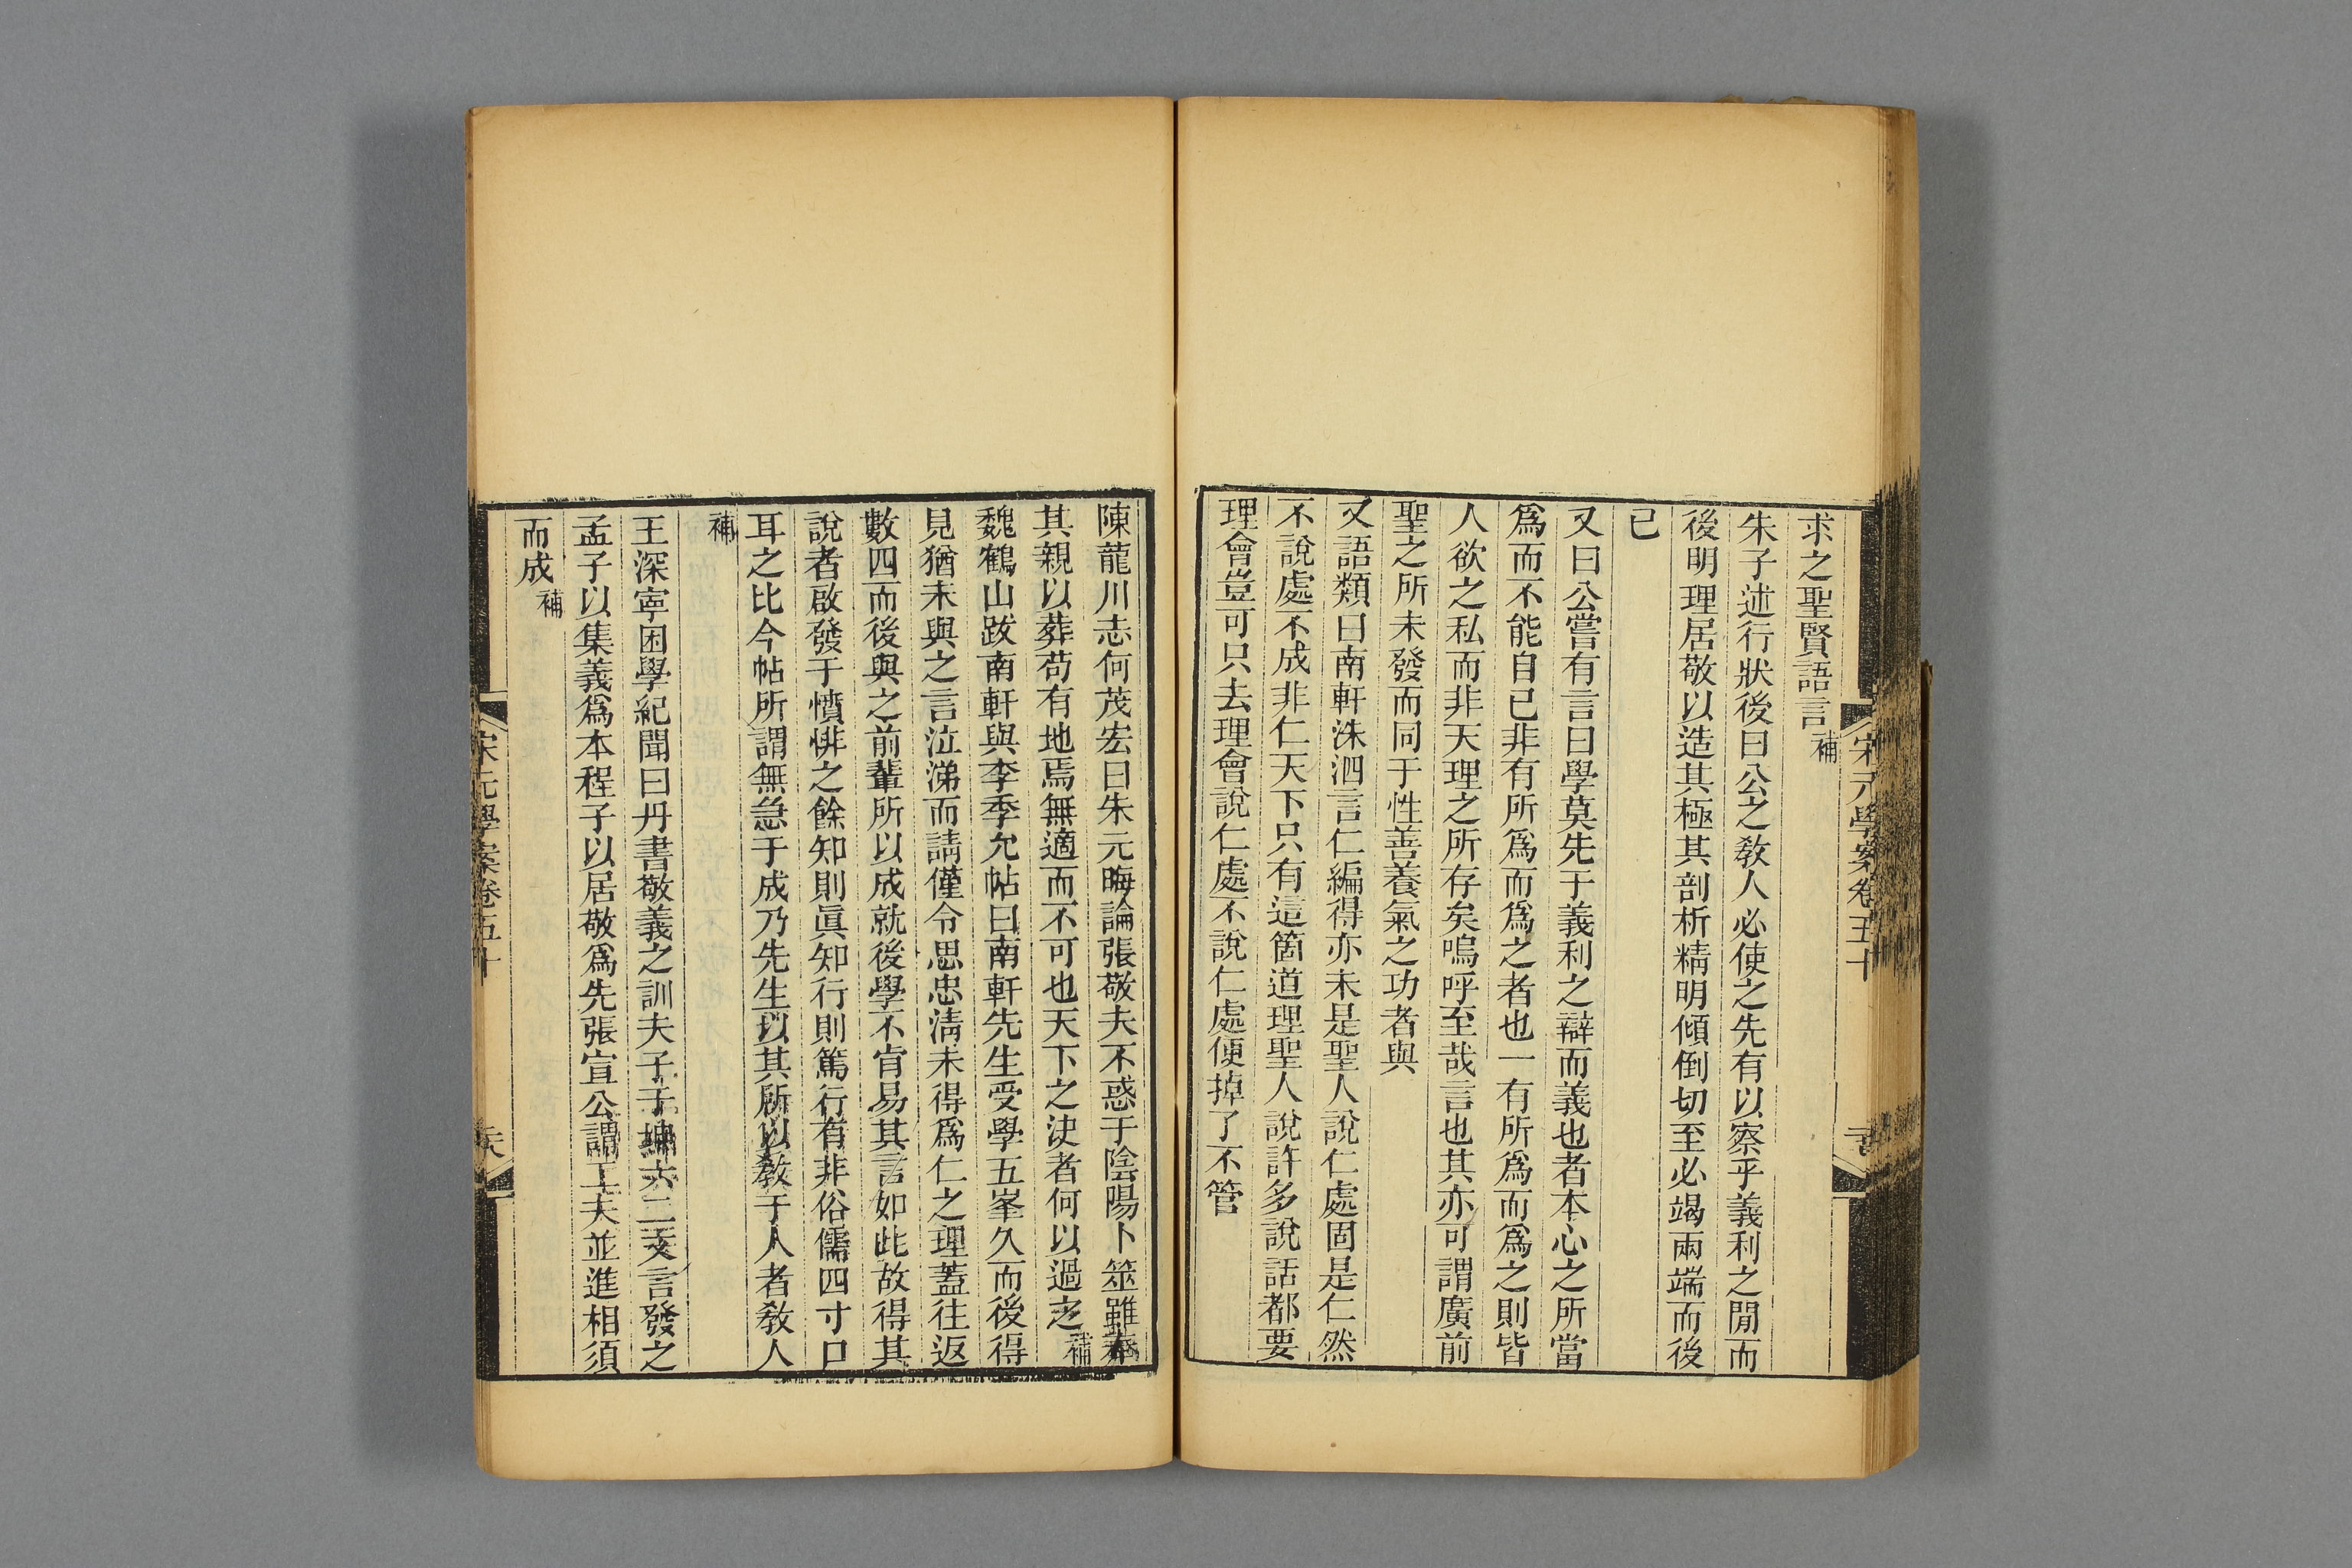 求之聖賢語言補
朱子述行狀後曰公之敎人必使之先有以察乎義利之閒而
後明理居敬以造其極其剖析精明傾倒切至必竭兩端而後
已
又曰公嘗有言曰學莫先于義利之辯而義也者本心之所當
爲而不能自已非有所爲而爲之者也一有所爲而爲之則皆
人欲之私而非天理之所存矣嗚呼至哉言也其亦可謂廣前
聖之所未發而同于性善養氣之功者與
又語類曰南軒洙泗言仁編得亦未是聖人說仁處固是仁然
不說處不成非仁天下只有這箇道理聖人說許多說話都要
理會豈可只去理會說仁處不說仁處便掉了不管
宋元學案卷五十
陳龍川志何茂宏曰朱元晦論張敬夫不惑于陰陽卜筮雖奉
其親以葬苟有地焉無適而不可也天下之決者何以過之補
魏鶴山跋南軒與李季允帖曰南軒先生受學五峯久而後得
見猶未與之言泣涕而請僅令思忠淸未得爲仁之理蓋往返
數四而後與之前輩所以成就後學不肯易其言如此故得其
說者啟發于憤悱之餘知則眞知行則篤行有非俗儒四寸口
耳之比今帖所謂無急于成乃先生以其所以敎于人者敎人
補
王深寜困學紀聞曰丹書敬義之訓夫子于坤六二文言發之
孟子以集義爲本程子以居敬爲先張宣公謂工夫並進相須
而成補
宋元學案卷五十